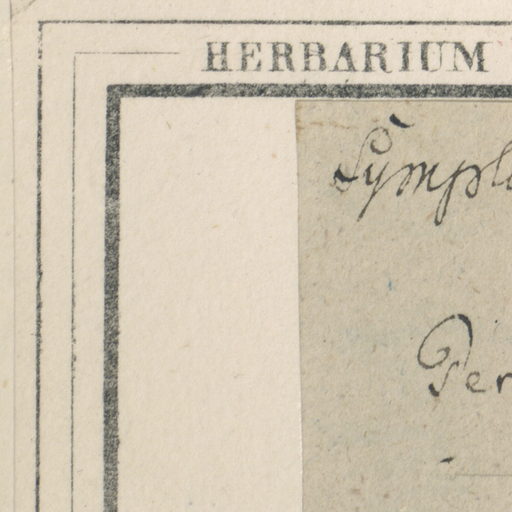 HERBARIUM
Symplo
Per